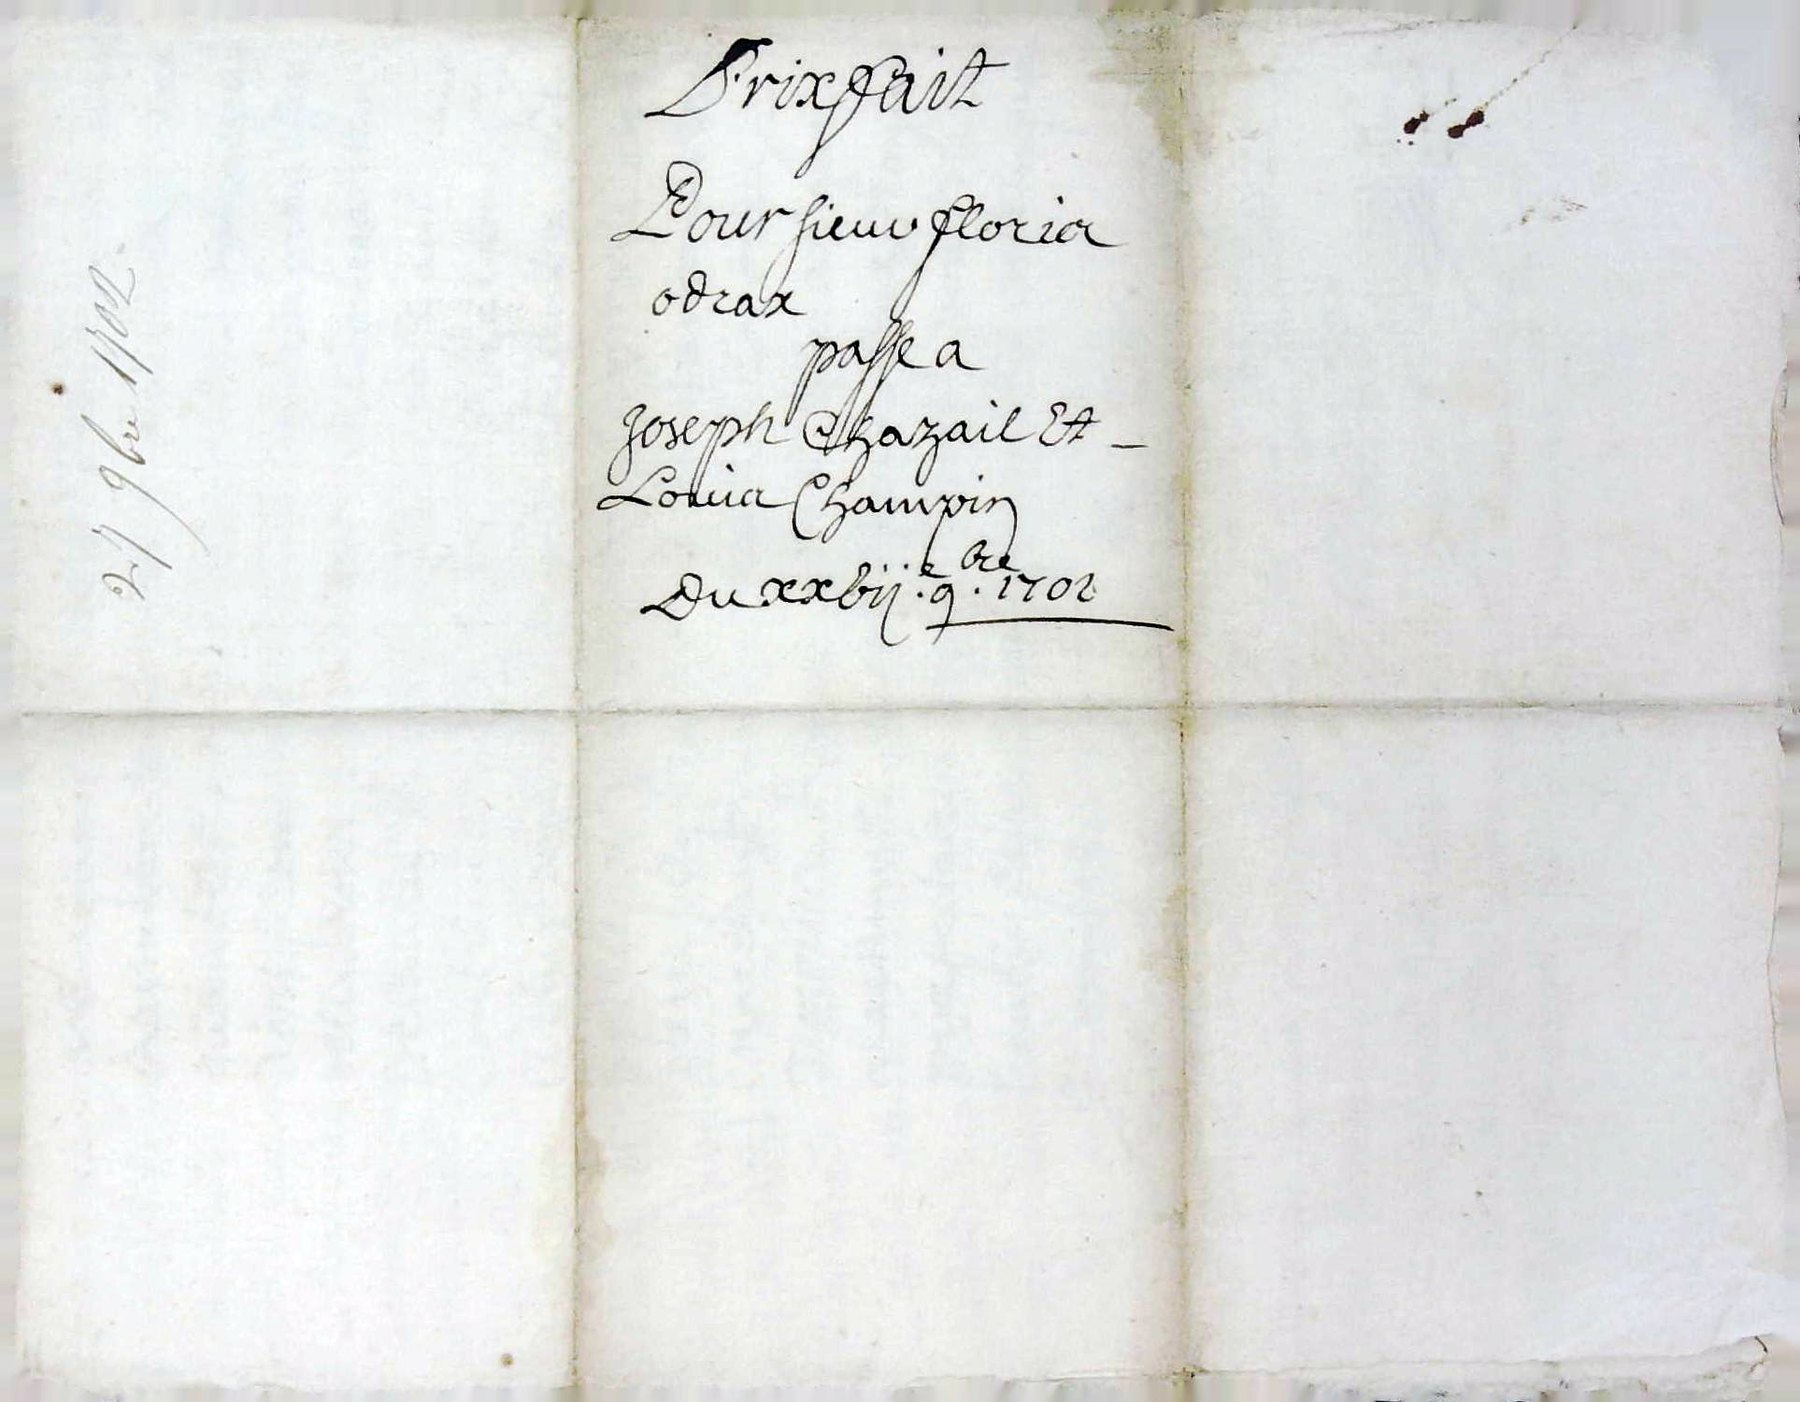 Prixfait
Pour sieur floris
odrax
passe a
Joseph Chazail Et
Louis Champin
Du xxvij.e 9.bre 1702
27 9bre 1702